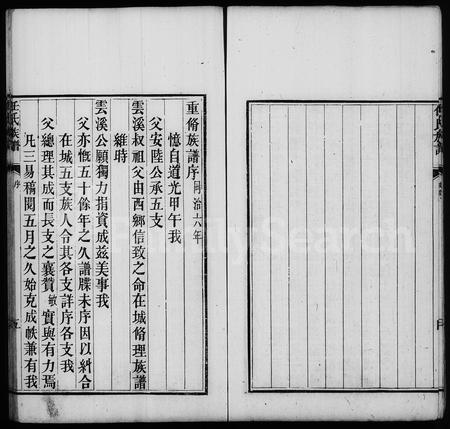 重脩族譜序 同治六年
憶自道光甲午我
父安陸公承五支
雲溪叔祖父由西鄉信致之命在城脩理族譜
維時
雲溪公願獨力捐資成茲美事我
父亦慨五十餘年之久譜牒未序因以糾合
在城五支族人令其各支詳序各支我
父總理其成而長支之襄贊敏實與有力焉
凡三易稿閱五月之久始克成帙兼有我
任氏族譜
序
五
FamilySearch